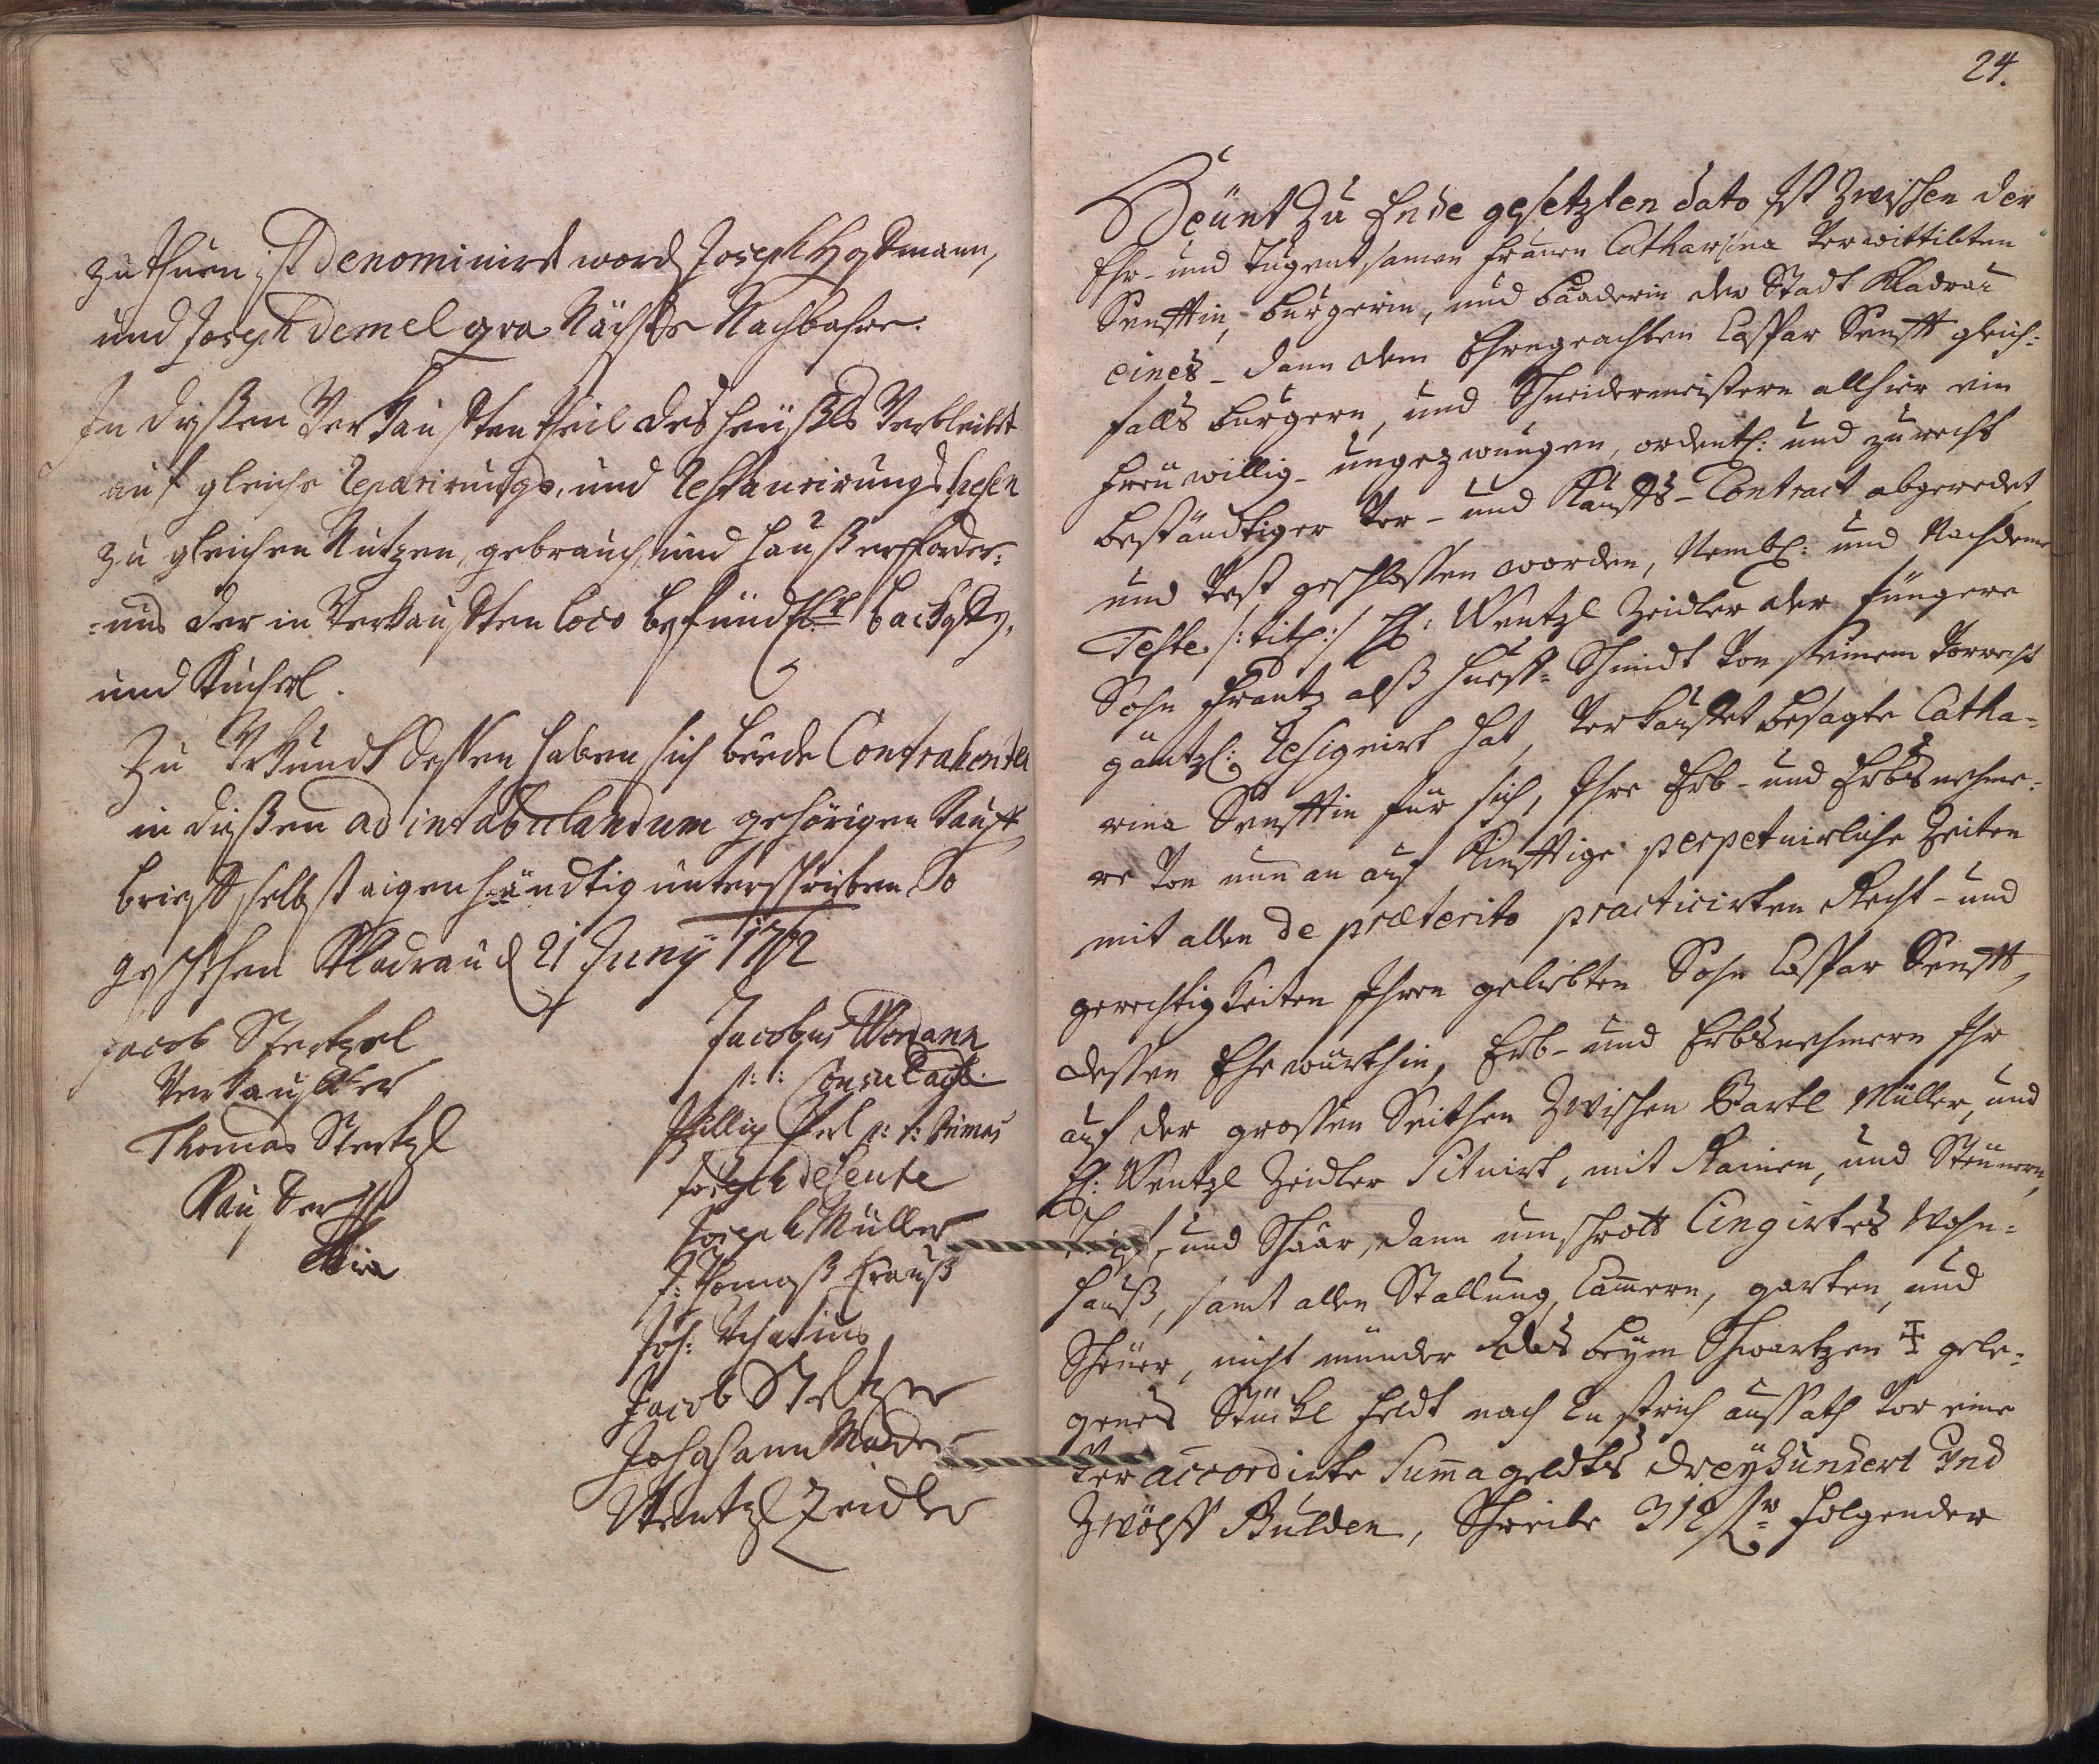 zu thuen ist denominirt word Joseph Hostmann,
und Joseph Demel qva Nächste Nachbahre.
In dießen Verkaufften theil des heüßls Verbleibt
auf gleiche Reparirungs, und Restaurirungs spesen
zu gleichen Nutzen, gebrauch, und haußerforder=
=nus der in Verkaufften loco befündtl: backofen,
und Kucherl.
Zu Uhrkundt dessen haben sich beede Contrahenten
in dießen ad intabulandum gehörigen Kauff
brieff selbst aigenhändtig unterschrieben So
geschehen Kladrau d 21 Juny 1762
Jacob Stertzel
Verkauffer
Thomas Stertzl
Kauffer
Jacobus Wondann
p: t: Consul
Phillip p: t: Primas
Joseph
Joseph Müller
Thomaß Crauß
Joh:
Jacob Steltzer
Johhann Mader
Wentzl Zeidler
24.
Heünt zu Ende gesetzten dato ist zwischen der
Ehr- und Tugentsamen Frauen Catharina Verwittibten
Senfftin, burgerin, und baaderin der Stadt Kladrau
eines- dann dem Ehrngeachten Caspar Senfft gleich=
falls burgern, und Schneidermeistern allhier ein
freuwillig- ungezwungen, ordentl: und zu recht
beständtiger Ver- und Kauffs-Contract abgeredet,
und Vest geschlossen worden, Nembl: und Nachdeme
Teste /: titl: / H: Wentzl Zeidler der Jüngere
Sohn Frantz alß hueff-Schmidt Von seinem Vorrecht
gäntzl: Resignirt hat, Verkauffet besagte Catha=
rina Senfftin für sich, Ihre Erb- und Erbsnehme=
re Von nun an auf Künfftige perpetuirliche Zeiten
mit allen de præterito practicirten Recht- und
gerechtigkeiten Ihren geliebten Sohn Caspar Senfft,
dessen Ehewürthin, Erb- und Erbsnehmern Ihr
auf der grossen Seithen zwischen Bartl Müller, und
H: Wentzl Zeidler Situirt, mit Rainen, und Steünern,
und Schaar, dann umschrott Cingirtes Wohn=
hauß, samt allen Stallung, Cammern, garten, und
Scheüer, nicht münder das beym Schwartzen ‡ gele=
genes Stückl feldt nach strich aussath Vor eine
Veraccordirte Summa geldts dreyhundert Und
Zwölff Gulden, Schreibe 312 fr folgender